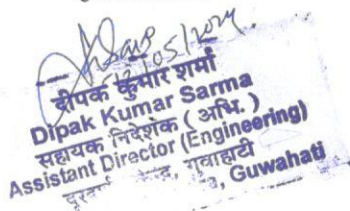 दीपक कुमार शर्मा
Dipak Kumar Sarma
सहायक निदेशक ( अभि. )
Assistant Director (Engineering)
गुवाहाटी
Guwahati